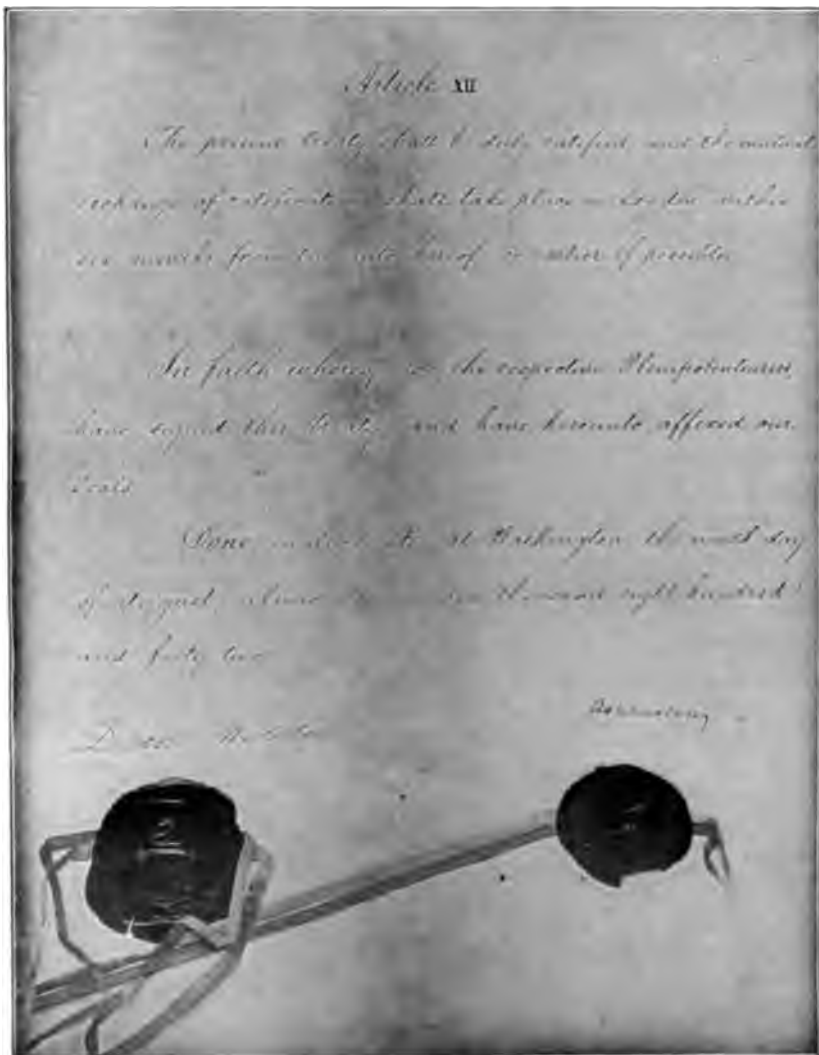 Article XII
The present treaty shall be duly ratified and the mutual
exchange of ratifications shall take place in London within
six months from the date hereof or earlier if possible
In faith whereof we, the respective Plenipotentiaries,
have signed this treaty and have hereunto affixed our
seals
Done, in duplicate at Washington the ninth day
of August, Anno Domini one thousand eight hundred
and forty two
Danl Webster
Ashburton